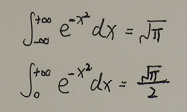 ∫_{-∞}^{+∞} e^{-x²} dx = √π
∫_{0}^{+∞} e^{-x²} dx = √π/2